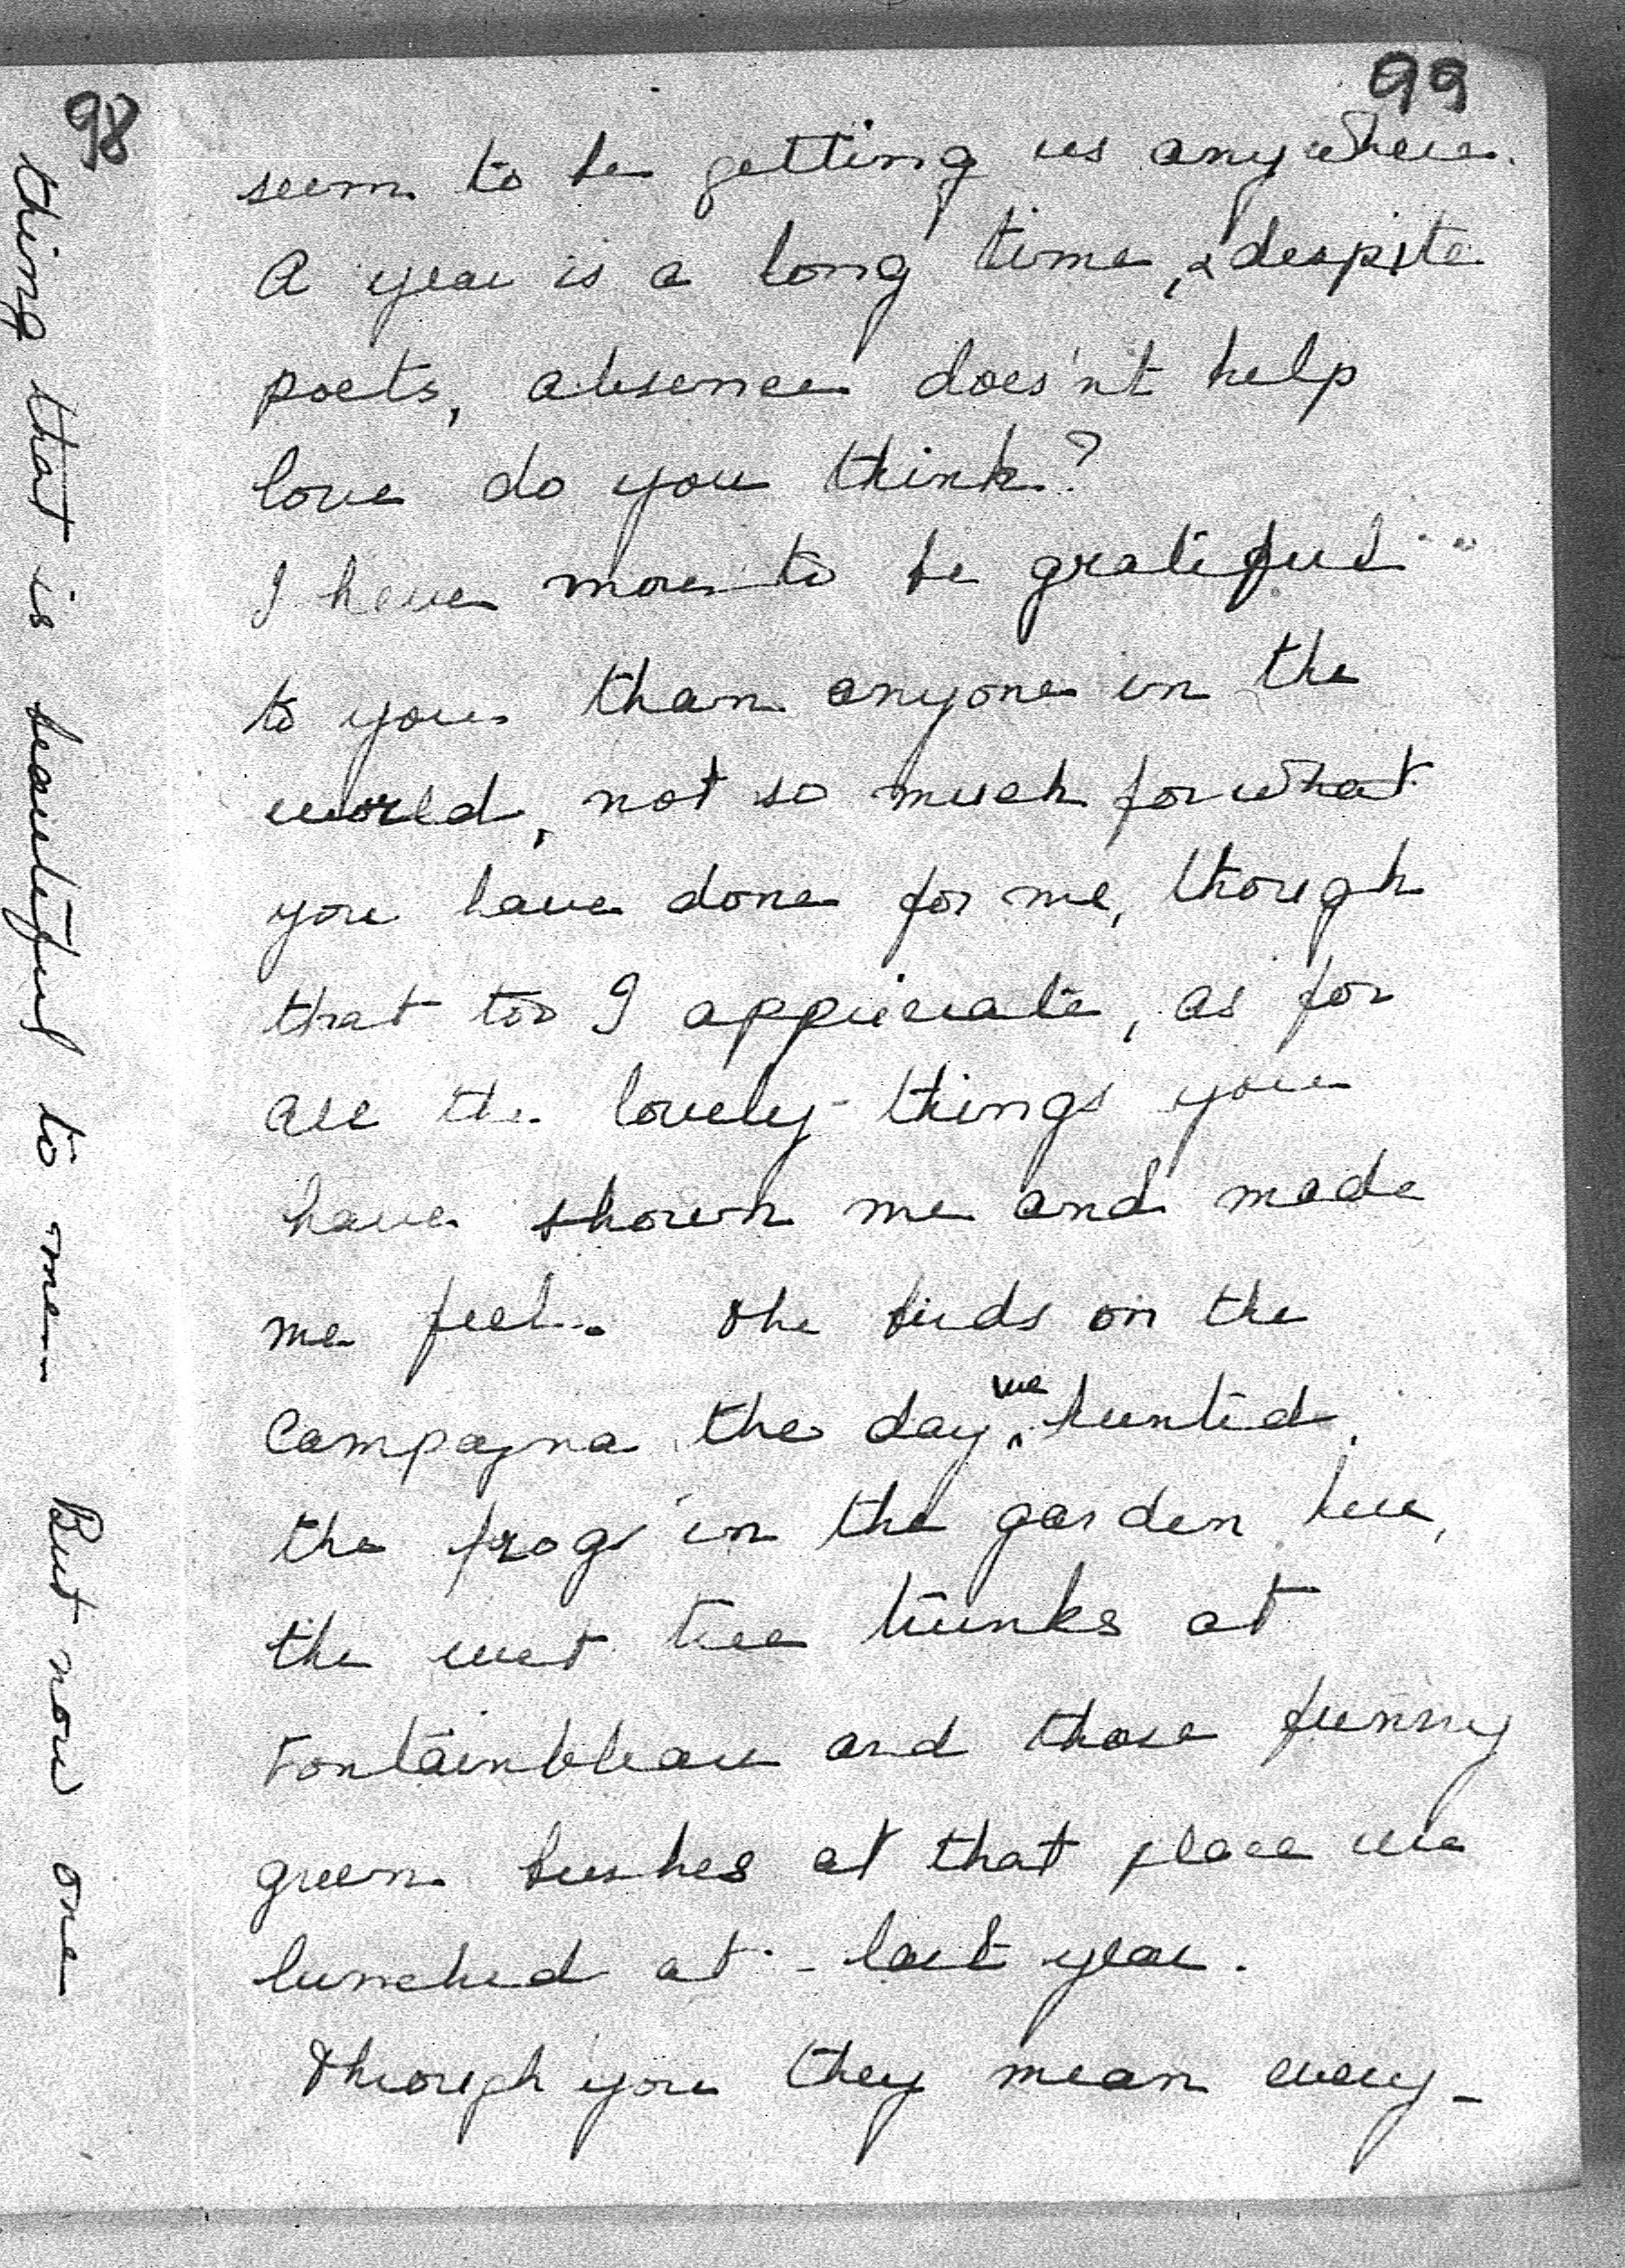 99
seem to be getting us anywhere.
A year is a long time, & despite
poets, absence does'nt help
love do you think?
I have more to be grateful
to you than anyone in the
world, not so much for what
you have done for me, though
that too I appreciate, as for
all the lovely things you
have shown me and made
me feel. The birds on the
Campagna the day we hunted,
the frogs in the garden here,
the wet tree trunks at
Fontainbleau and those funny
green bushes at that place we
lunched at - last year.
Through you they mean every-
98
thing that is beautiful to me--
But now one